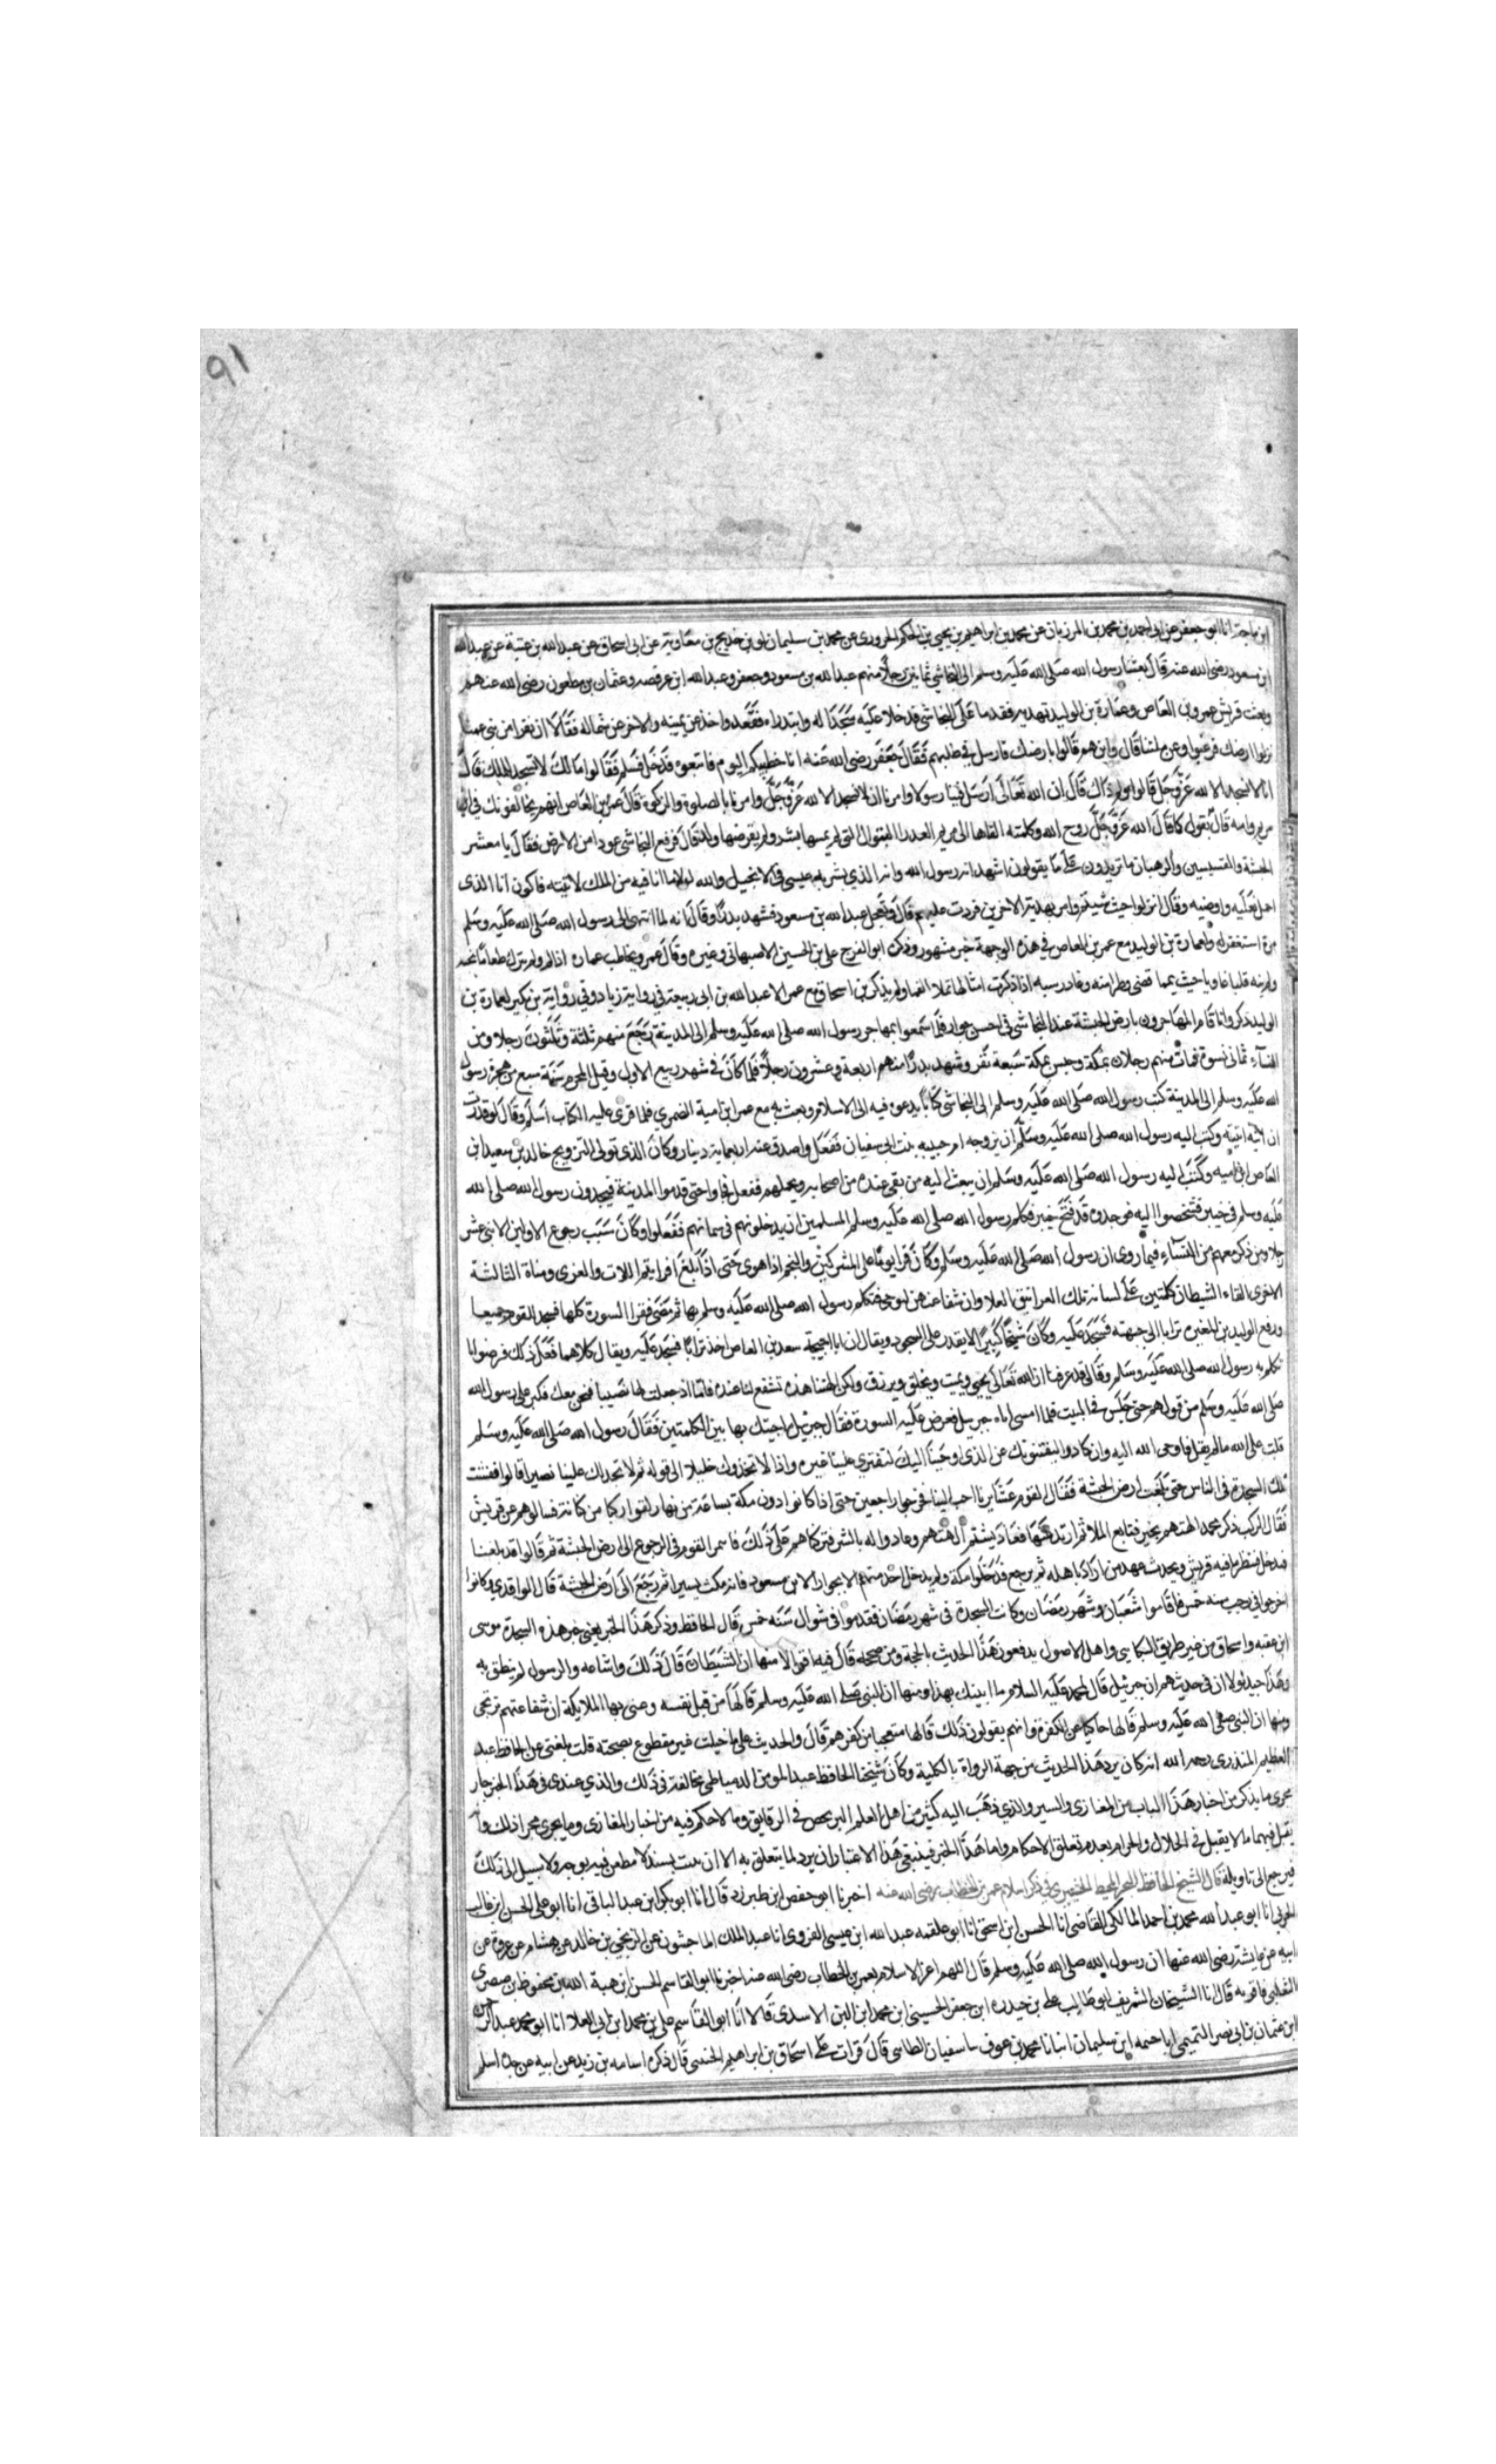 ٩١
ابن ماجة انا ابو جعفر عن ابى احمد بن محمد بن المرزبان عن محمد بن ابراهيم بن يحيى بن الحكم الحرورى عن محمد بن سليمان لوين خديج بن معاوية عن ابى اسحاق عن عبد الله بن عتبة عن عبد الله
ابن مسعود رضى الله عنه قال بعثنا رسول الله صلى الله عليه وسلم الى النجاشي ثمانين رجلا منهم عبد الله بن مسعود وجعفر وعبد الله ابن عرفصه وعثمان بن مظعون رضى الله عنهم
وبعث قريش عمرو بن العاص وعمارة بن الوليد بهدية فقدما على النجاشى فدخلا عليه سجدا له وابتدراه فقعد واحد عن يمينه والاخر عن شماله فقالا ان نفرا من بنى عمنا
نزلوا ارضك فرغبوا عن ملتنا قال واين هم قالوا بارضك فارسل في طلبهم فقال جعفر رضى الله عنه انا خطيبكم اليوم فاتبعوه فدخل فسلم فقالوا مالك لا تسجد للملك قال
انا لا نسجد الا لله عز وجل قالوا ولم ذاك قال ان الله تعالى ارسل فينا رسولا وامرنا ان لا نسجد الا لله عز وجل وامرنا بالصلوة والزكوة قال عمرو بن العاص انهم يخالفونك في ابن
مريم وامه قال نقول كما قال الله عز وجل روح الله وكلمته القاها الى مريم العدرا البتول التى لم يمسها بشر ولم يفرضها ولد قال فرفع النجاشى عودا من الارض فقال يا معشر
الحبشة والقسيسين والرهبان ما تريدون على ما يقولون اشهد انه رسول الله وانه الذي بشر به عيسى في الانجيل والله لولا ما انا فيه من الملك لاتيته فاكون انا الذى
احمل نعليه واوضيه وقال انزلوا حيث شيتم وامر بهدية الاخرين فردت عليهم قال وتعجل عبد الله بن مسعود فشهد بدرا وقال انه لما انتهى الى رسول الله صلى الله عليه وسلم
موته استغفر له ولعمارة بن الوليد مع عمر بن العاص في هذه الوجهة خبر مشهور وذكره ابو الفرج على بن الحسين الاصبهانى وغيره وقال عمرو يخاطب عماره اذا المرء لم يترك طعاما يحبه
ولم ينه قلبا غاويا حيث يمما قضى وطرا منه وغادر سبه اذا ذكرت امثالها تملا الفما ولم يذكر بن اسحاق مع عمر الا عبد الله بن ابى ربيعة في رواية زياد وفي رواية بن بكير لعمارة بن
الوليد ذكر واقام المهاجرون بارض الحبشة عند النجاشى في احسن جوار فلما سمعوا بمهاجر رسول الله صلى الله عليه وسلم الى المدينة رجع منهم ثلثة وثلثون رجلا ومن
النساء ثمانى نسوة فمات منهم رجلان بمكة وحبس بمكة سبعة نفر وشهد بدرا منهم اربعة وعشرون رجلا فلما كان في شهر ربيع الاول وقيل المحرم سنة سبع من هجرة رسول
الله عليه وسلم الى المدينة كتب رسول الله صلى الله عليه وسلم الى النجاشى كتابا يدعوه فيه الى الاسلام وبعث به مع عمر ابن امية الضمري فلما قرى عليه الكتاب اسلم وقال لو قدرت
ان اتيه اتيته وكتب اليه رسول الله صلى الله عليه وسلم ان يزوجه ام حبيبه بنت ابى سفيان ففعل واصدق عنه اربعماية دينار وكان الذى تولى التزويج خالد بن سعيد ابن
العاص ابن اميه وكتب اليه رسول الله صلى الله عليه وسلم ان يبعث اليه من بقى عنده من اصحابه ويحملهم ففعل فجاوا حتى قدموا المدينة فيجدون رسول الله صلى الله
عليه وسلم في خيبر فشخصوا اليه فوجدوه قد فتح خيبر فكلم رسول الله صلى الله عليه وسلم المسلمين ان يدخلونهم في سهمانهم ففعلوا وكان سبب رجوع الاولين الاثنى عشر
رجلا ومن ذكر معهم من النساء فيما روى ان رسول الله صلى الله عليه وسلم وكان قرا يوما على المشركين والنجم اذا هوى حتى اذا بلغ افرايتم اللات والعزى ومناة الثالثة
الاخرى القاء الشيطان كلمتين على لسانه تلك الغرانيق العلا وان شفاعتهن لترجى فتكلم رسول الله صلى الله عليه وسلم بها ثم مضى فقرا السورة كلها فسجد القوم جميعا
ورفع الوليد بن المغيره ترابا الى جبهته فسجد عليه وكان شيخا كبيرا لا يقدر على السجود ويقال ان ابا احيحة سعد بن العاص اخذ ترابا فسجد عليه ويقال كلاهما فعل ذلك فرضوا بما
تكلم به رسول الله صلى الله عليه وسلم وقالوا قد عرفنا ان الله تعالى يحيى ويميت ويخلق ويرزق ولكن الهتنا هذه تشفع لنا عنده فاما اذ جعلت لها نصيبا فنحن معك فكبر على رسول الله
صلى الله عليه وسلم من قولهم حتى جلس في البيت فلما امسى اتاه جبريل فعرض عليه السورة فقال جبريل ما جيتك بها بين الكلمتين فقال رسول الله صلى الله عليه وسلم
قلت على الله ما لم يقل فاوحى الله اليه وان كادوا ليفتنونك عن الذى اوحينا اليك لتفترى علينا غيره واذا لاتخذوك خليلا الى قوله ثم لا تجد لك علينا نصيرا قالوا ففشت
تلك السجدة في الناس حتى بلغت ارض الحبشة فقال القوم عشايرنا احب الينا فخرجوا راجعين حتى اذا كانوا دون مكة بساعة من نهار لقوا ركبا من كنانة فسالوهم عن قريش
فقال الركب ذكر محمد الهتهم بخير فتابع الملا ثم ارتد عنها فعاد يشتم الهتهم وعادوا له بالشر فتركناهم على ذلك فاتمر القوم في الرجوع الى ارض الحبشة ثم قالوا قد بلغنا
فندخل فننظر ما فيه قريش ويحدث عهد من اراد باهله ثم يرجع فدخلوا مكة ولم يدخل احد منهم الا بجوار الا بن مسعود فانه مكث يسيرا ثم رجع الى ارض الحبشة قال الواقدي وكانوا
اخرجوا في رجب سنه خمس فاقاموا شعبان وشهر رمضان وكانت السجدة في شهر رمضان فقدموا في شوال سنه خمس قال الحافظ وذكر هذا الخبر يعنى خبر هذه السجدة موسى
ابن عقبه واسحاق من غير طريق البكايى واهل الاصول يدفعون هذا الحديث بالحجة ومن صححه قال فيه اقوالا منها ان الشيطان قال ذلك واشاعه والرسول لم ينطق به
وهذا جيد لولا ان في حديثهم ان جبريل قال لمحمد عليه السلام ما اتيتك بهذا ومنها ان النبى صلى الله عليه وسلم قالها من قبل نفسه وعنى بها الملايكه ان شفاعتهم ترتجى
ومنها ان النبى صلى الله عليه وسلم قالها حاكيا عن الكفرة وانهم يقولون ذلك قالها متعجبا من كفرهم قال والحديث على ما خيلت غير مقطوع بصحته قلت بلغنى عن الحافظ عبد
العظيم المنذرى رحمه الله انه كان يرد هذا الحديث من جهة الرواة بالكلية وكان شيخنا الحافظ عبد المومن الدمياطى يخالفه في ذلك والذي عندى في هذا الخبر جار
مجرى ما يذكر من اخبار هذا الباب من المغازى والسير والذي ذهب اليه كثير من اهل العلم الترخص في الرقايق وما لا حكم فيه من اخبار المغازى وما يجرى مجرا ذلك وانه
يقبل فيها ما لا يقبل في الحلال والحرام لعدم تعلق الاحكام واما هذا الخبر فينبغى هذا الاعتبار ان يرد لما يتعلق به الا ان يثبت بسند لا مطعن فيه بوجه ولا سبيل الى ذلك
فيرجع الى تاويله قال الشيخ الحافظ البحر المحيط الخضيرى في ذكر اسلام عمر بن الخطاب رضى الله عنه اخبرنا ابو حفص ابن طبرزد قال انا ابو بكر ابن عبد الباقى انا ابو على الحسن ابن غالب
الحربى انا ابو عبد الله محمد بن احمد المالكى القاضى انا الحسن ابن اسحق انا ابو علقمه عبد الله ابن عيسى الفروى انا عبد الملك الماجشون عن الزنجى بن خالد عن هشام عن عروة عن
ابيه عن عايشة رضى الله عنها ان رسول الله صلى الله عليه وسلم قال اللهم اعز الاسلام بعمر بن الخطاب رضى الله عنه اخبرنا ابو القاسم الحسن ابن هبة الله بن محفوظ بن صصرى
الثعلبى فاقر به قال انا الشيخان الشريف ابو طالب على بن حيدره ابن جعفر الحسينى ابن محمد ابن البن الاسدى قالا انا ابو القاسم على بن محمد ابن ابى العلا انا ابو محمد عبد الرحمن
ابن عثمان بن ابى نصر التميمى ابا خيثمه ابن سليمان انبانا محمد بن عوف سا سفيان الطائى قال قرات على اسحاق بن ابراهيم الحنينى قال ذكره اسامه بن زيد عن ابيه عن جده اسلم